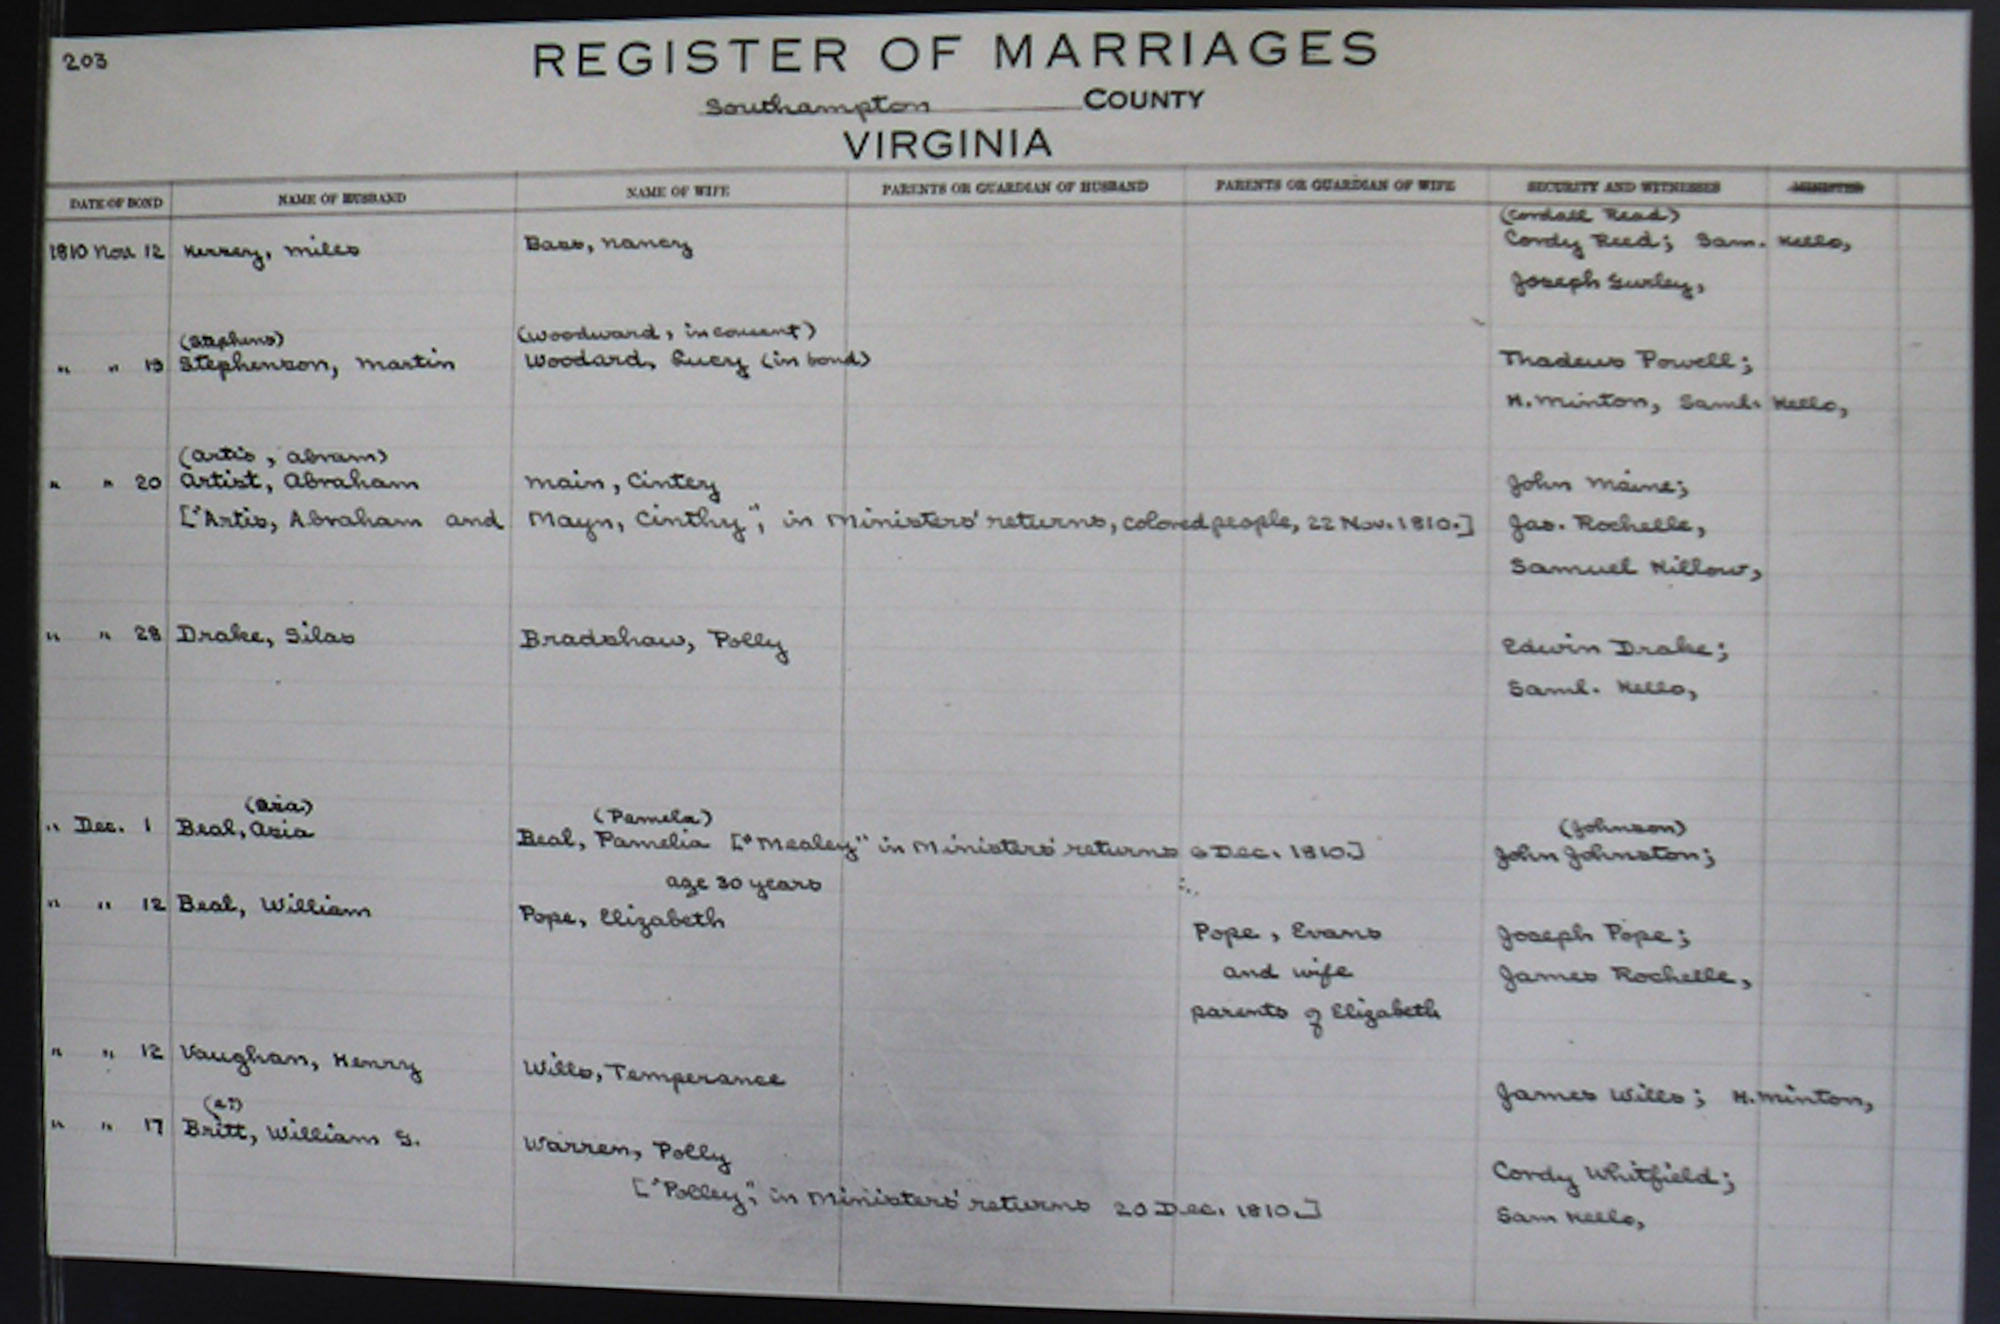 203
REGISTER OF MARRIAGES
Southampton COUNTY
VIRGINIA
DATE OF BOND NAME OF HUSBAND NAME OF WIFE PARENTS OR GUARDIAN OF HUSBAND PARENTS OR GUARDIAN OF WIFE SECURITY AND WITNESSES MINISTER
(Cordall Read)
1810 Nov. 12 Kersey, Miles Bass, Nancy Cordy Reed; Sam. Kello,
Joseph Gurley,
(Stephens) (Woodward, in consent)
" " 19 Stephenson, Martin Woodard, Lucy (in bond) Thadeus Powell;
H. Minton, Saml. Kello,
(Artis, Abram)
" " 20 Artist, Abraham Main, Cintey John Maine;
["Artis, Abraham and Mayn, Cinthy", in Ministers' returns, colored people, 22 Nov. 1810.] Jas. Rochelle,
Samuel Killow,
" " 28 Drake, Silas Bradshaw, Polly Edwin Drake;
Saml. Kello,
(Asia) (Pamela) (Johnson)
" Dec. 1 Beal, Asia Beal, Pamelia ["Mealey" in Ministers' returns 6 Dec. 1810.] John Johnston;
age 30 years
" " 12 Beal, William Pope, Elizabeth Pope, Evans Joseph Pope;
and wife James Rochelle,
parents of Elizabeth
" " 12 Vaughan, Henry Wills, Temperance James Wills; H. Minton,
" " 17 Britt, William G. Warren, Polly Cordy Whitfield;
["Polley", in Ministers' returns 20 Dec. 1810.] Sam Kello,